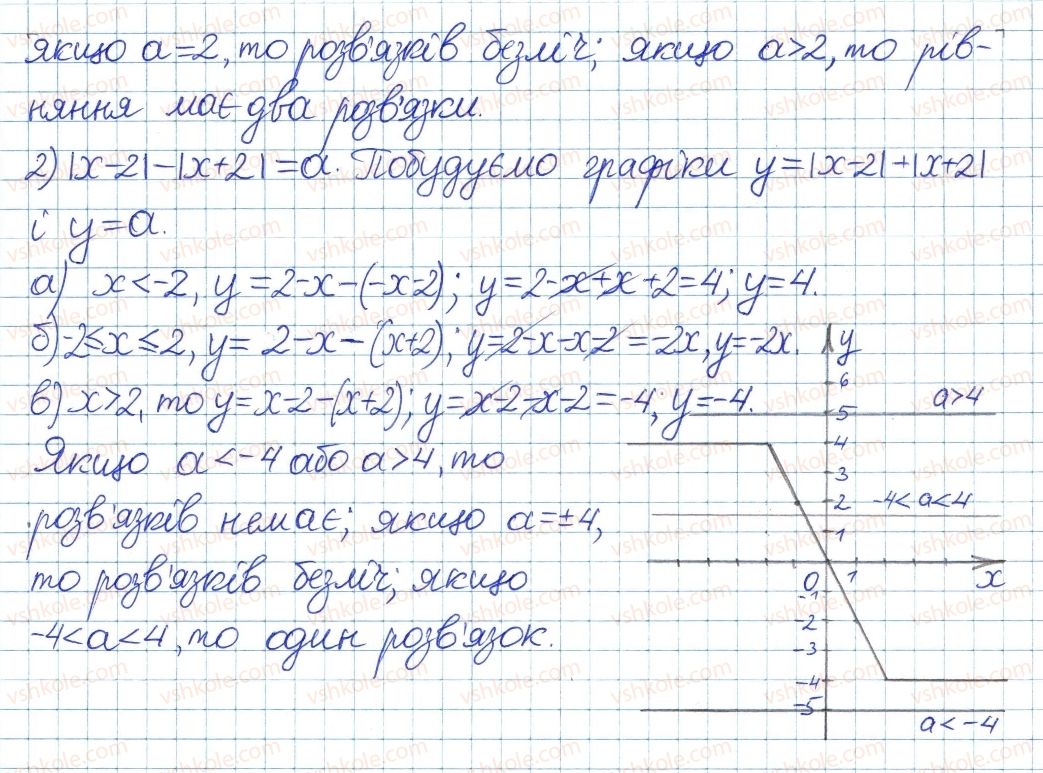 якщо a=2, то розв'язків безліч; якщо a>2, то рів-
няння має два розв'язки.
2) |x-2|-|x+2|=a. Побудуємо графіки y=|x-2|+|x+2|
і y=a.
а) x<-2, y=2-x-(-x-2); y=2-x+x+2=4; y=4.
б) -2≤x≤2, y=2-x-(x+2); y=2-x-x-2=-2x, y=-2x.
в) x>2, то y=x-2-(x+2); y=x-2-x-2=-4; y=-4.
Якщо a<-4 або a>4, то
розв'язків немає; якщо a=±4,
то розв'язків безліч; якщо
-4<a<4, то один розв'язок.
y
6
a>4
5
4
3
2
-4<a<4
1
0
1
x
-1
-2
-3
-4
-5
a<-4
vshkole.com